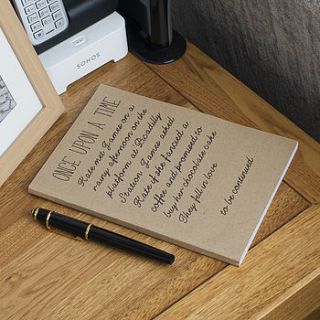 SONOS
ONCE UPON A TIME
Kate met James on a
rainy afternoon on the
platform at Picadilly
Station. James asked
Kate if she fancied a
coffee and promised to
buy her chocolate cake
They fell in love
to be continued